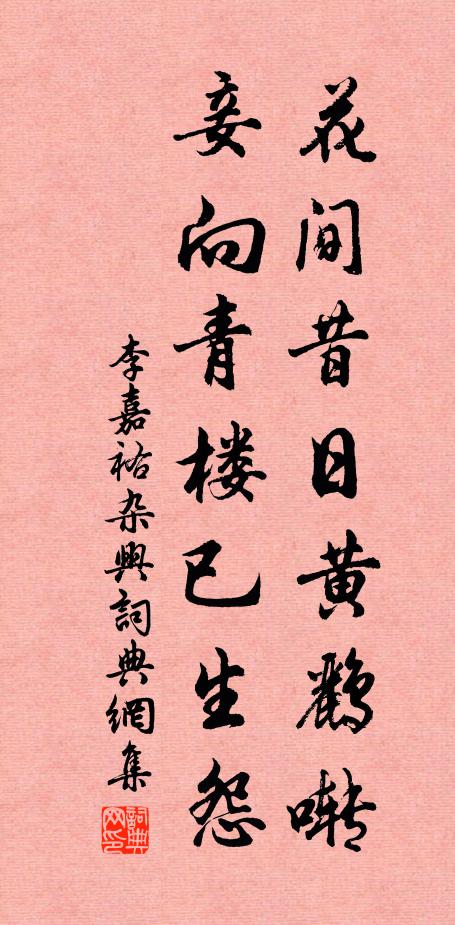 花间昔日黄鸝啭
妾向青楼已生怨
李嘉祐杂興詞典網集
詞典网印